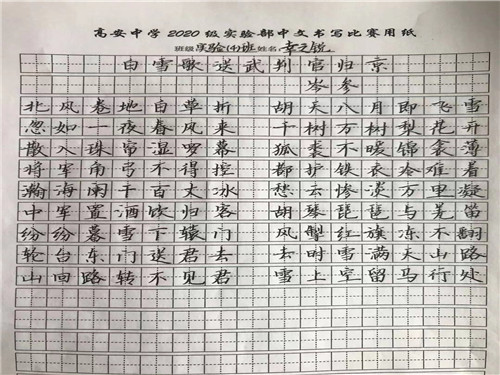 高安中学2020级实验部中文书写比赛用纸
班级 实验(4)班 姓名: 幸之锐
白雪歌送武判官归京
岑参
北风卷地白草折 胡天八月即飞雪
忽如一夜春风来 千树万树梨花开
散入珠帘湿罗幕 狐裘不暖锦衾薄
将军角弓不得控 都护铁衣冷难着
瀚海阑干百丈冰 愁云惨淡万里凝
中军置酒饮归客 胡琴琵琶与羌笛
纷纷暮雪下辕门 风掣红旗冻不翻
轮台东门送君去 去时雪满天山路
山回路转不见君 雪上空留马行处